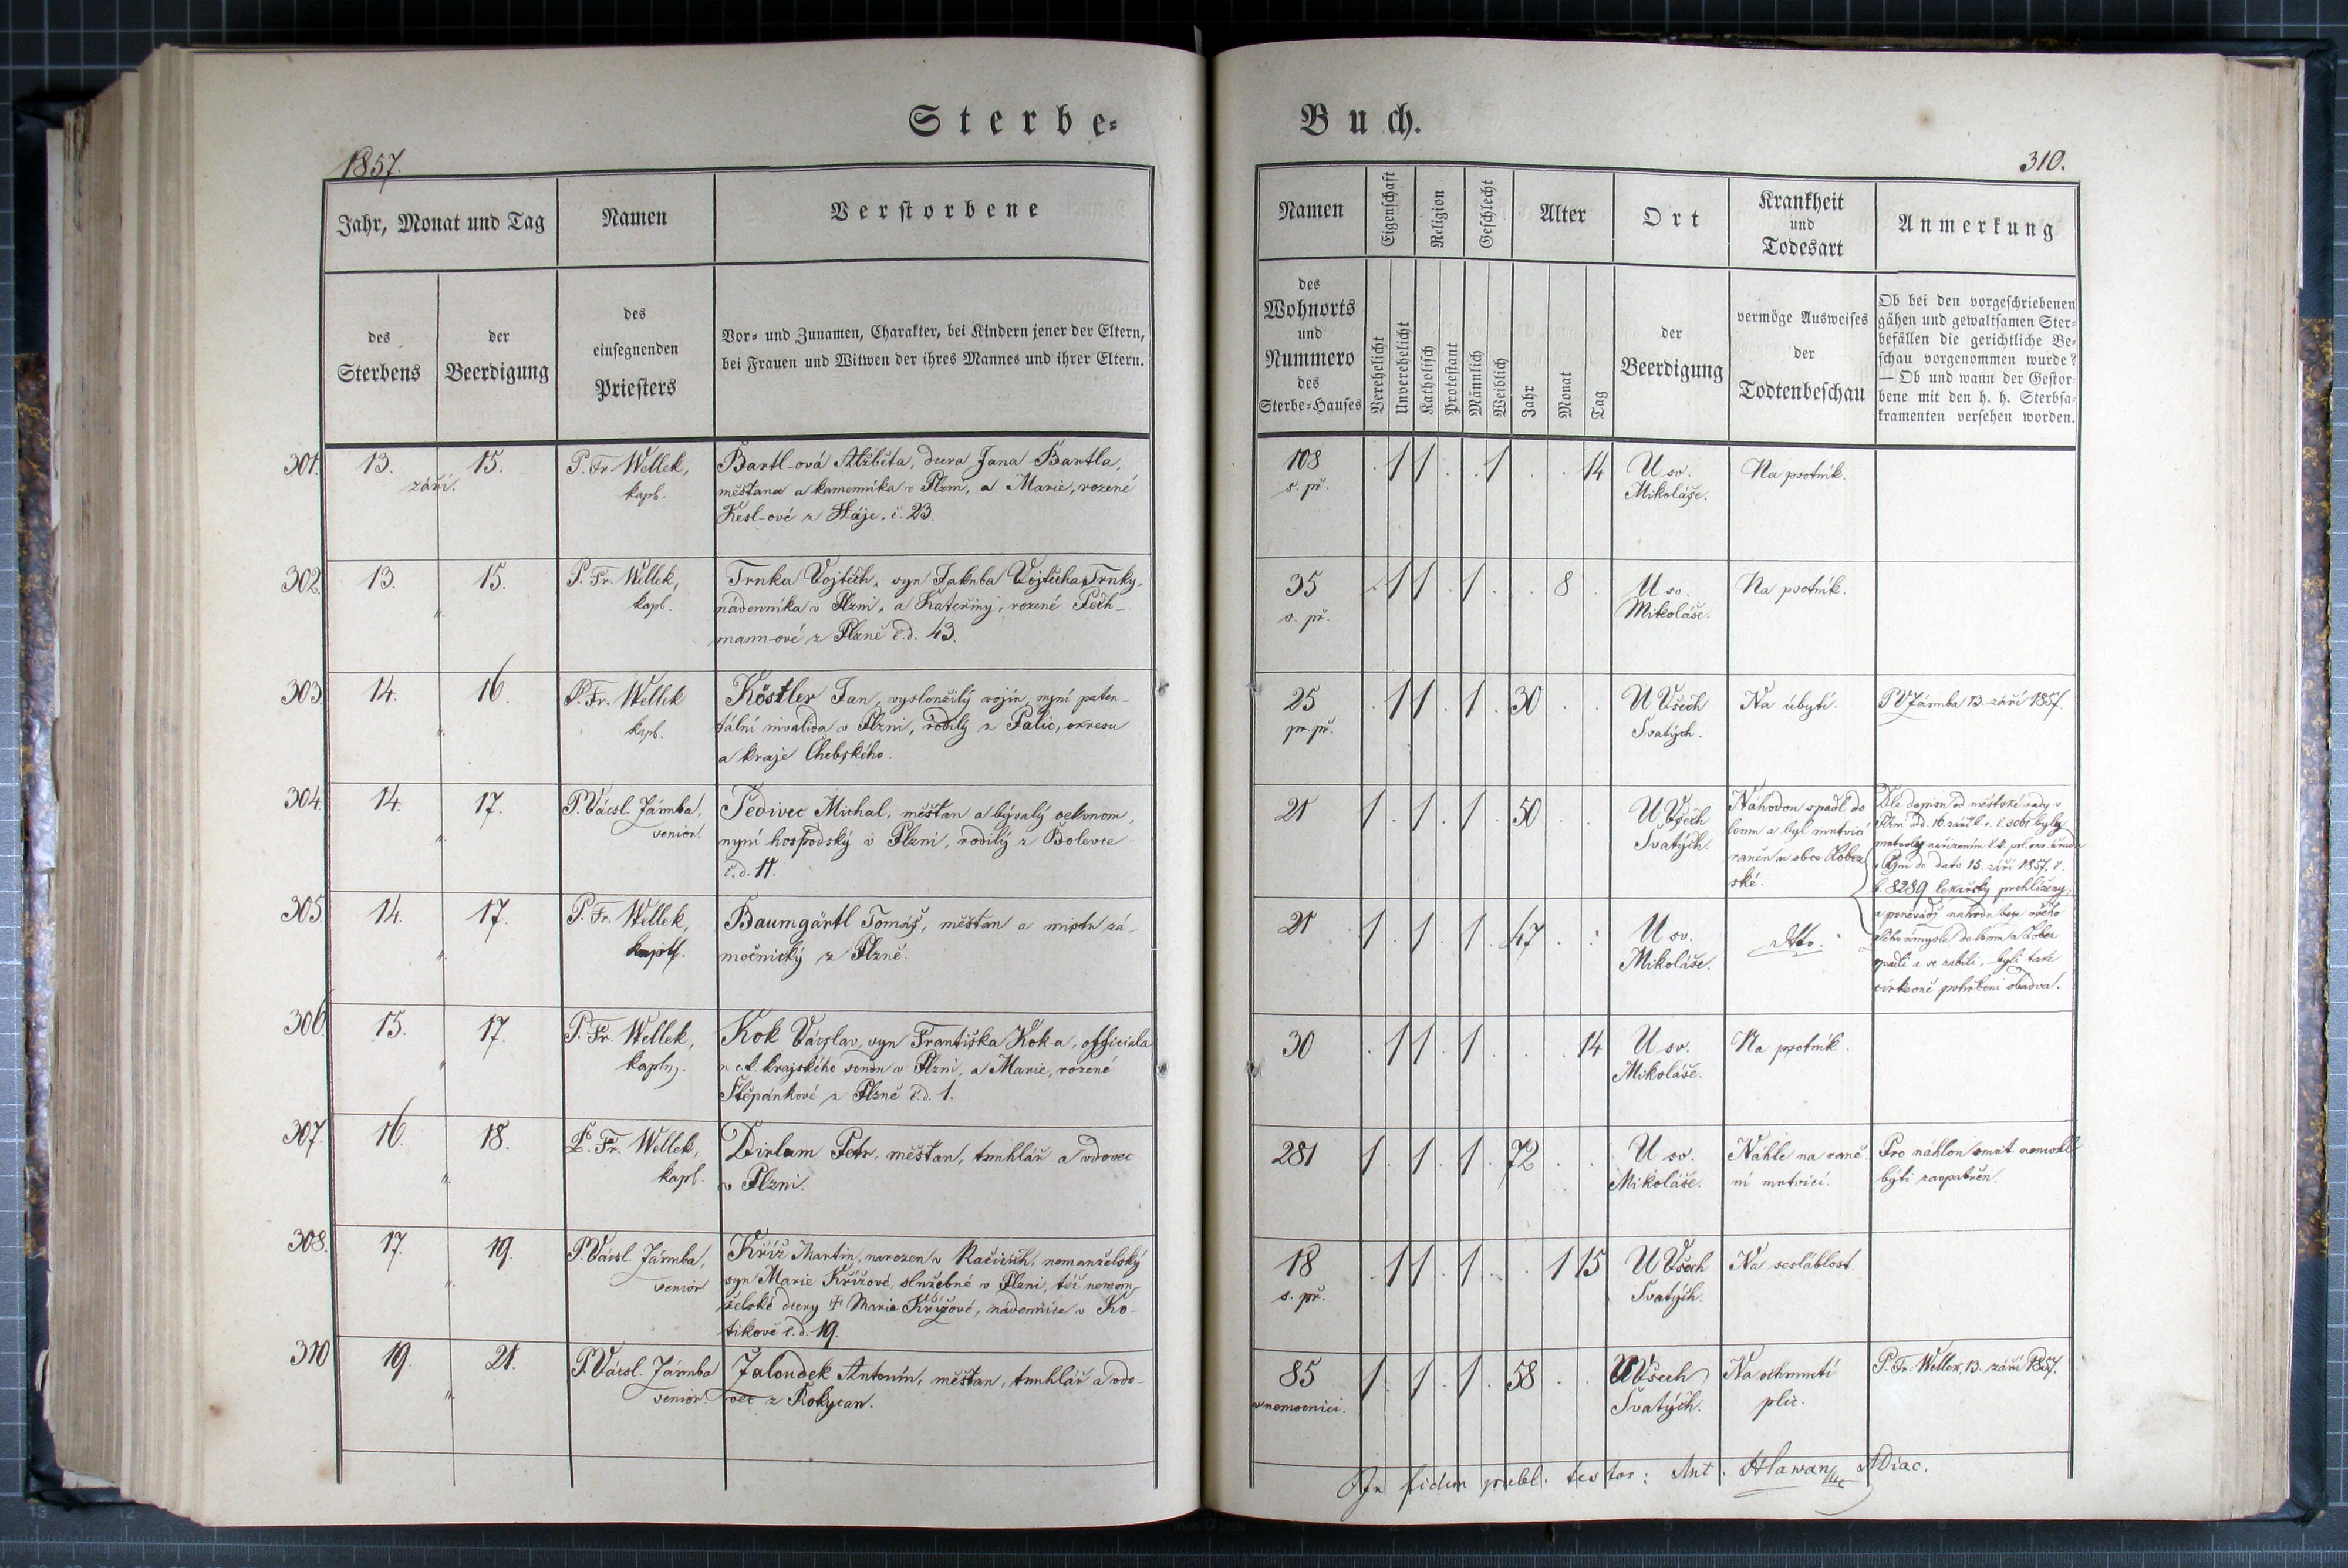 Sterbe-
1857.
Jahr, Monat und Tag
Namen
Verstorbene
des
Sterbens
der
Beerdigung
des
einsegnenden
Priesters
Vor- und Zunamen, Charakter, bei Kindern jener der Eltern,
bei Frauen und Witwen der ihres Mannes und ihrer Eltern.
301. 13. 15.
září.
P. Fr. Wellek,
kapl.
Bartl-ová Alžběta, dcera Jana Bartla,
měšťana a kamenníka v Plzni, a Marie, rozené
Kesl-ové z Háje, č. 23.
302. 13. 15.
P. Fr. Wellek,
kapl.
Trnka Vojtěch, syn Jakuba Vojtěcha Trnky,
nádenníka v Plzni, a Kateřiny, rozené Pech-
mann-ové z Plzně č.d. 43.
303. 14. 16.
P. Fr. Wellek
kapl.
Köstler Jan, vysloužilý vojín, nyní paten-
tální invalida v Plzni, rodilý z Palic, okresu
a kraje Chebského.
304. 14. 17.
P. Václ. Jármba,
senior.
Šedivec Michal, měšťan a bývalý oekonom,
nyní hospodský v Plzni, rodilý z Bolevce
č.d. 11.
305 14. 17.
P. Fr. Wellek,
kapl.
Baumgärtl Tomáš, měšťan a mistr zá-
močnický z Plzně.
306. 15. 17.
P. Fr. Wellek,
kapln.
Kok Václav, syn Františka Kok-a, officiala
c.k. krajského soudu v Plzni, a Marie, rozené
Štěpánkové z Plzně č.d. 1.
307. 16. 18.
P. Fr. Wellek,
kapl.
Dirlam Petr, měšťan, truhlář a vdovec
v Plzni.
308. 17. 19.
P. Václ. Jármba,
senior
Kříž Martin, narozen v Račicích, nemanželský
syn Marie Křížové, služebné v Plzni, též neman-
želské dcery † Marie Křížové, nádennice v Ko-
tikově č.d. 19.
310 19. 21.
P. Václ. Jármba
senior.
Žaloudek Antonín, měšťan, truhlář a vdo-
vec z Rokycan.
Buch.
310.
Namen
Eigenschaft
Religion
Geschlecht
Alter
Ort
Krankheit
und
Todesart
Anmerkung
des
Wohnorts
und
Nummero
des
Sterbe-Hauses
Verehelicht
Unverehelicht
Katholisch
Protestant
Männlich
Weiblich
Jahr
Monat
Tag
der
Beerdigung
vermöge Ausweises
der
Todtenbeschau
Ob bei den vorgeschriebenen
gähen und gewaltsamen Ster-
befällen die gerichtliche Be-
schau vorgenommen wurde?
— Ob und wann der Gestor-
bene mit den h. h. Sterbsa-
kramenten versehen worden.
108 1 1 1 14 U sv. Na psotník.
s. př. Mikoláše.
35 1 1 1 8 U sv. Na psotník.
s. př. Mikoláše.
25 1 1 1 30 U Všech Na úbytí. P V Jármba 13. září 1857.
pr. př. Svatých.
21 1 1 1 50 U Všech
Svatých.
Náhodou spadl do
lomu a byl mrtvicí
raněn v obce Lobez
ské.
Dle dopisu od městské rady v
Plzni dd. 16. září b. r. č. 3061 byly
dato 15. září 1857, č.
8289 lékařsky prohlíženy,
21 1 1 1 47 U sv. dtto.
Mikoláše.
a se zabili, byli také
církevně pohřbeni obadva.
30 1 1 1 14 U sv. Na psotník.
Mikoláše.
281 1 1 1 72 U sv. Náhle na raně- Pro náhlou smrt nemohl
Mikoláše. ní mrtvicí. býti zaopatřen.
18 1 1 1 1 15 U Všech Na sesláblost.
s. př. Svatých.
85 1 1 1 58 U Všech Na ochrnutí P. Fr. Wellek, 13. září 1857.
v nemocnici. Svatých. plic.
In fidem publ. testor: Ant. Hlawan ADiac.